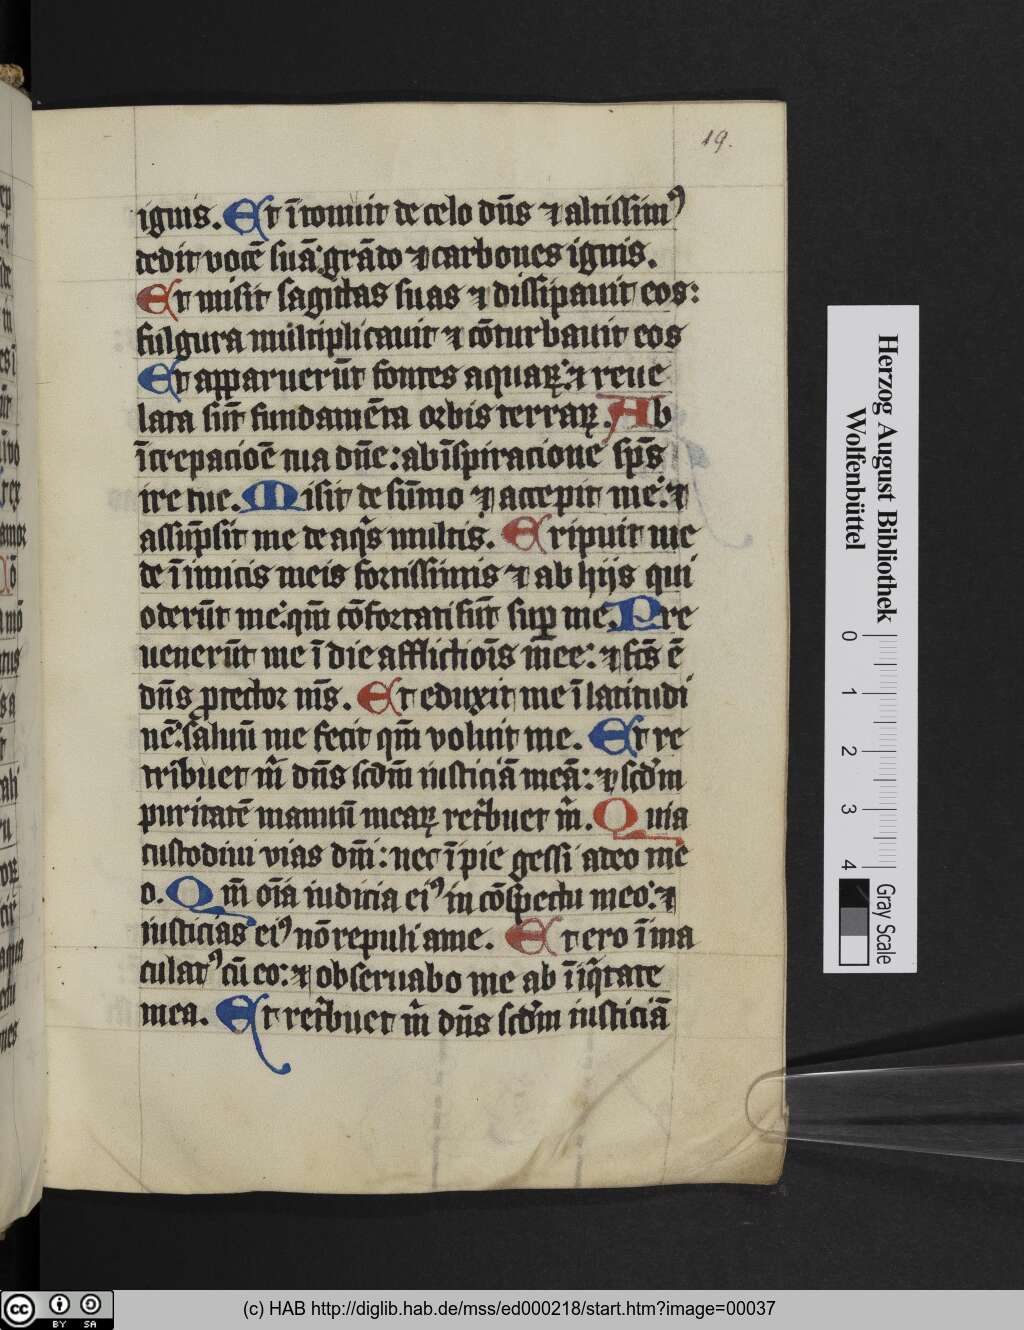 19.
ignis. Et ītonuit de celo dn̄s ⁊ altissimꝰ
dedit vocē suā: grādo ⁊ carbones ignis.
Et misit sagittas suas ⁊ dissipauit eos:
fulgura multiplicauit ⁊ cōturbauit eos
Et apparuerūt fontes aquaꝝ: ⁊ reue
lata sūt fundamēta orbis terraꝝ. Ab
īcrepacioē tua dn̄e: ab īspiracione sp̄s
ire tue. Misit de sūmo ⁊ accepit me: ⁊
assūpsit me de aqͥs multis. Eripuit me
de īimicis meis fortissimis ⁊ ab hijs qui
oderūt me: qm̄ cōfortati sūt suꝑ me. Pre
uenerūt me ī die afflictiōis mee: ⁊ fc̄s ē
dn̄s ꝓtector m̄s. Et eduxit me ī latitudi
nē: saluū me fecit qm̄ voluit me. Et re
tribuet m̄ dn̄s scd̄m iusticiā meā: ⁊ scd̄m
puritatē manuū meaꝝ retͥbuet m̄. Quia
custodiui vias dn̄i: nec īpie gessi a deo me
o. Qm̄ oīa iudicia eiꝰ in cōspectu meo: ⁊
iusticias eiꝰ nō repuli a me. Et ero īma
culatꝰ cū eo: ⁊ obseruabo me ab īiqͥtate
mea. Et retͥbuet m̄ dn̄s scd̄m iusticiā
Herzog August Bibliothek
Wolfenbüttel
0 1 2 3 4
Gray Scale
cc BY SA
(c) HAB http://diglib.hab.de/mss/ed000218/start.htm?image=00037